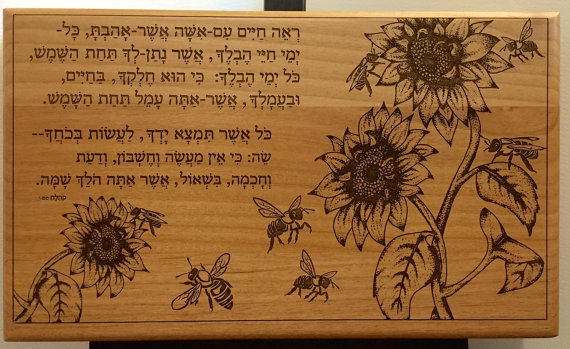 רְאֵה חַיִּים עִם-אִשָּׁה אֲשֶׁר-אָהַבְתָּ, כָּל-
יְמֵי חַיֵּי הֶבְלֶךָ, אֲשֶׁר נָתַן-לְךָ תַּחַת הַשֶּׁמֶשׁ,
כֹּל יְמֵי הֶבְלֶךָ: כִּי הוּא חֶלְקְךָ, בַּחַיִּים,
וּבַעֲמָלְךָ, אֲשֶׁר-אַתָּה עָמֵל תַּחַת הַשָּׁמֶשׁ.
כֹּל אֲשֶׁר תִּמְצָא יָדְךָ, לַעֲשׂוֹת בְּכֹחֲךָ--
שֵׂה: כִּי אֵין מַעֲשֶׂה וְחֶשְׁבּוֹן, וְדַעַת
וְחָכְמָה, בִּשְׁאוֹל, אֲשֶׁר אַתָּה הֹלֵךְ שָׁמָּה.
קהלת